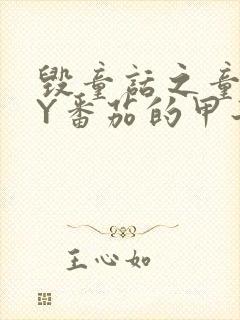 毁童话之童
Y番茄的甲
王心如